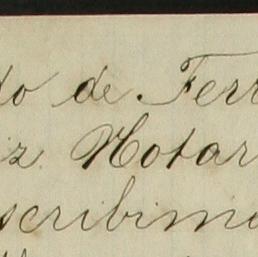 do de Ferr
iz Notar
scribimo